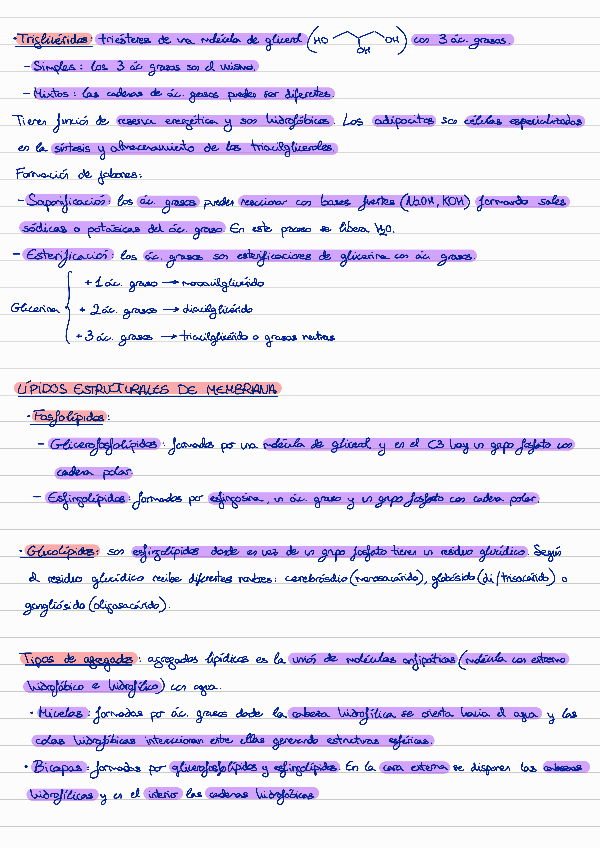 · Triglicéridos: triésteres de una molécula de glicerol (HO OH OH) con 3 ác. grasos.
- Simples: los 3 ác grasos son el mismo.
- Mixtos: las cadenas de ác. grasos pueden ser diferentes.
Tienen función de reserva energética y son hidrofóbicos. Los adipocitos son células especializadas
en la síntesis y almacenamiento de los triacilgliceroles
Formación de jabones:
- Saponificación: los ác. grasos pueden reaccionar con bases fuertes (NaOH, KOH) formando sales
sódicas o potásicas del ác. graso En este proceso se libera H2O.
- Esterificación: los ác. grasos son esterificaciones de glicerina con ác. grasos.
+ 1 ác. graso → monoacilglicérido
Glicerina + 2 ác. grasos → diacilglicérido
+ 3 ác. grasos → triacilglicérido o grasas neutras
LÍPIDOS ESTRUCTURALES DE MEMBRANA
· Fosfolípidos:
- Glicerofosfolípidos: formados por una molécula de glicerol y en el C3 hay un grupo fosfato con
cadena polar.
- Esfingolípidos: formados por esfingosina, un ác. graso y un grupo fosfato con cadena polar.
· Glucolípidos: son esfingolípidos donde en vez de un grupo fosfato tienen un residuo glucídico. Según
el residuo glucídico recibe diferentes nombres: cerebrósido (monosacárido), globósido (di/trisacárido) o
gangliósido (oligosacárido).
Tipos de agregados: agregados lipídicos es la unión de moléculas anfipáticas (molécula con extremo
hidrofóbico e hidrofílico) con agua.
· Micelas: formadas por ác. grasos donde la cabeza hidrofílica se orienta hacia el agua y las
colas hidrofóbicas interaccionan entre ellas generando estructuras esféricas.
· Bicapas: formadas por glicerofosfolípidos y esfingolípidos. En la cara externa se disponen las cabezas
hidrofílicas y en el interior las cadenas hidrofóbicas